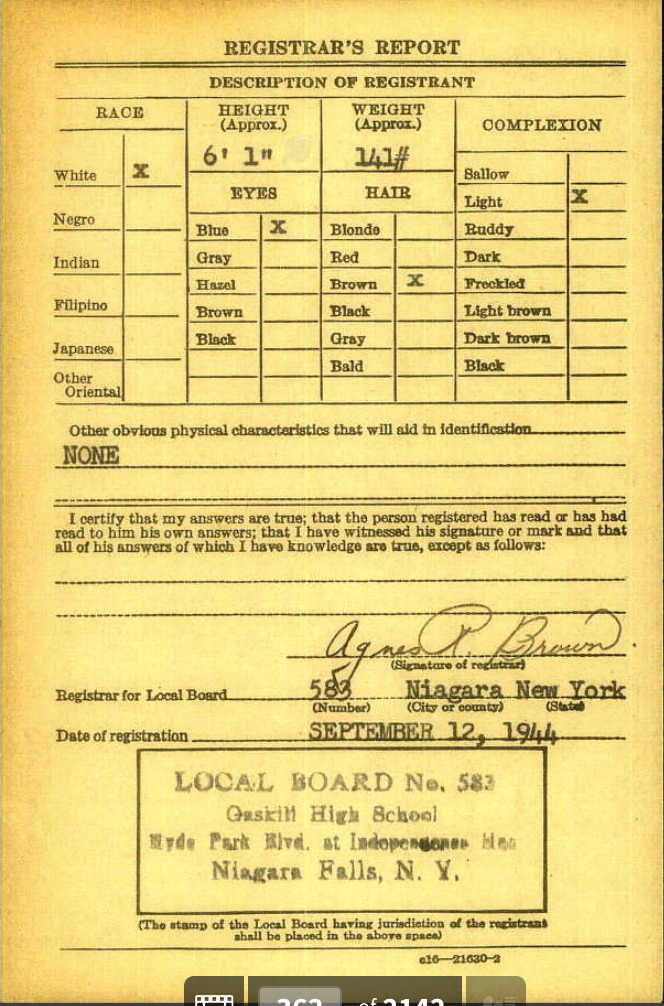 REGISTRAR'S REPORT
DESCRIPTION OF REGISTRANT
RACE
HEIGHT
(Approx.)
WEIGHT
(Approx.)
COMPLEXION
6' 1"
141#
White X
EYES
HAIR
Sallow
Light X
Negro
Blue X
Blonde
Ruddy
Indian
Gray
Red
Dark
Hazel
Brown X
Freckled
Filipino
Brown
Black
Light brown
Japanese
Black
Gray
Dark brown
Other
Oriental
Bald
Black
Other obvious physical characteristics that will aid in identification
NONE
I certify that my answers are true; that the person registered has read or has had
read to him his own answers; that I have witnessed his signature or mark and that
all of his answers of which I have knowledge are true, except as follows:
Agnes R. Brown
(Signature of registrar)
Registrar for Local Board 583 Niagara New York
(Number) (City or county) (State)
Date of registration SEPTEMBER 12, 1944
LOCAL BOARD No. 583
Gaskill High School
Hyde Park Blvd. at Independence
Niagara Falls, N. Y.
(The stamp of the Local Board having jurisdiction of the registrant
shall be placed in the above space)
c16—21630-2
of 2142